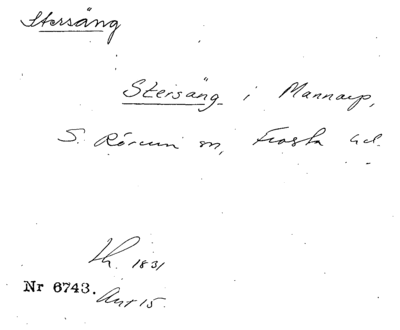 Stersäng
Stersäng i Mannarp,
S. Rörum sn, Frosta hd.
Lh. 1831
Nr 6743. Akt 15.